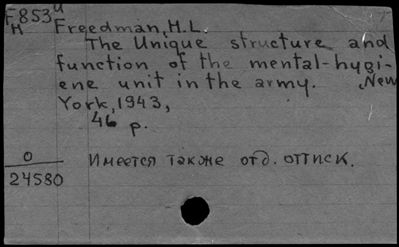 F853u
M
Freedman, H.L.
The Unique structure and
function of the mental-hygi-
ene unit in the army. New
York, 1943,
46 p.
0
24580
Имеется также отд. оттиск.